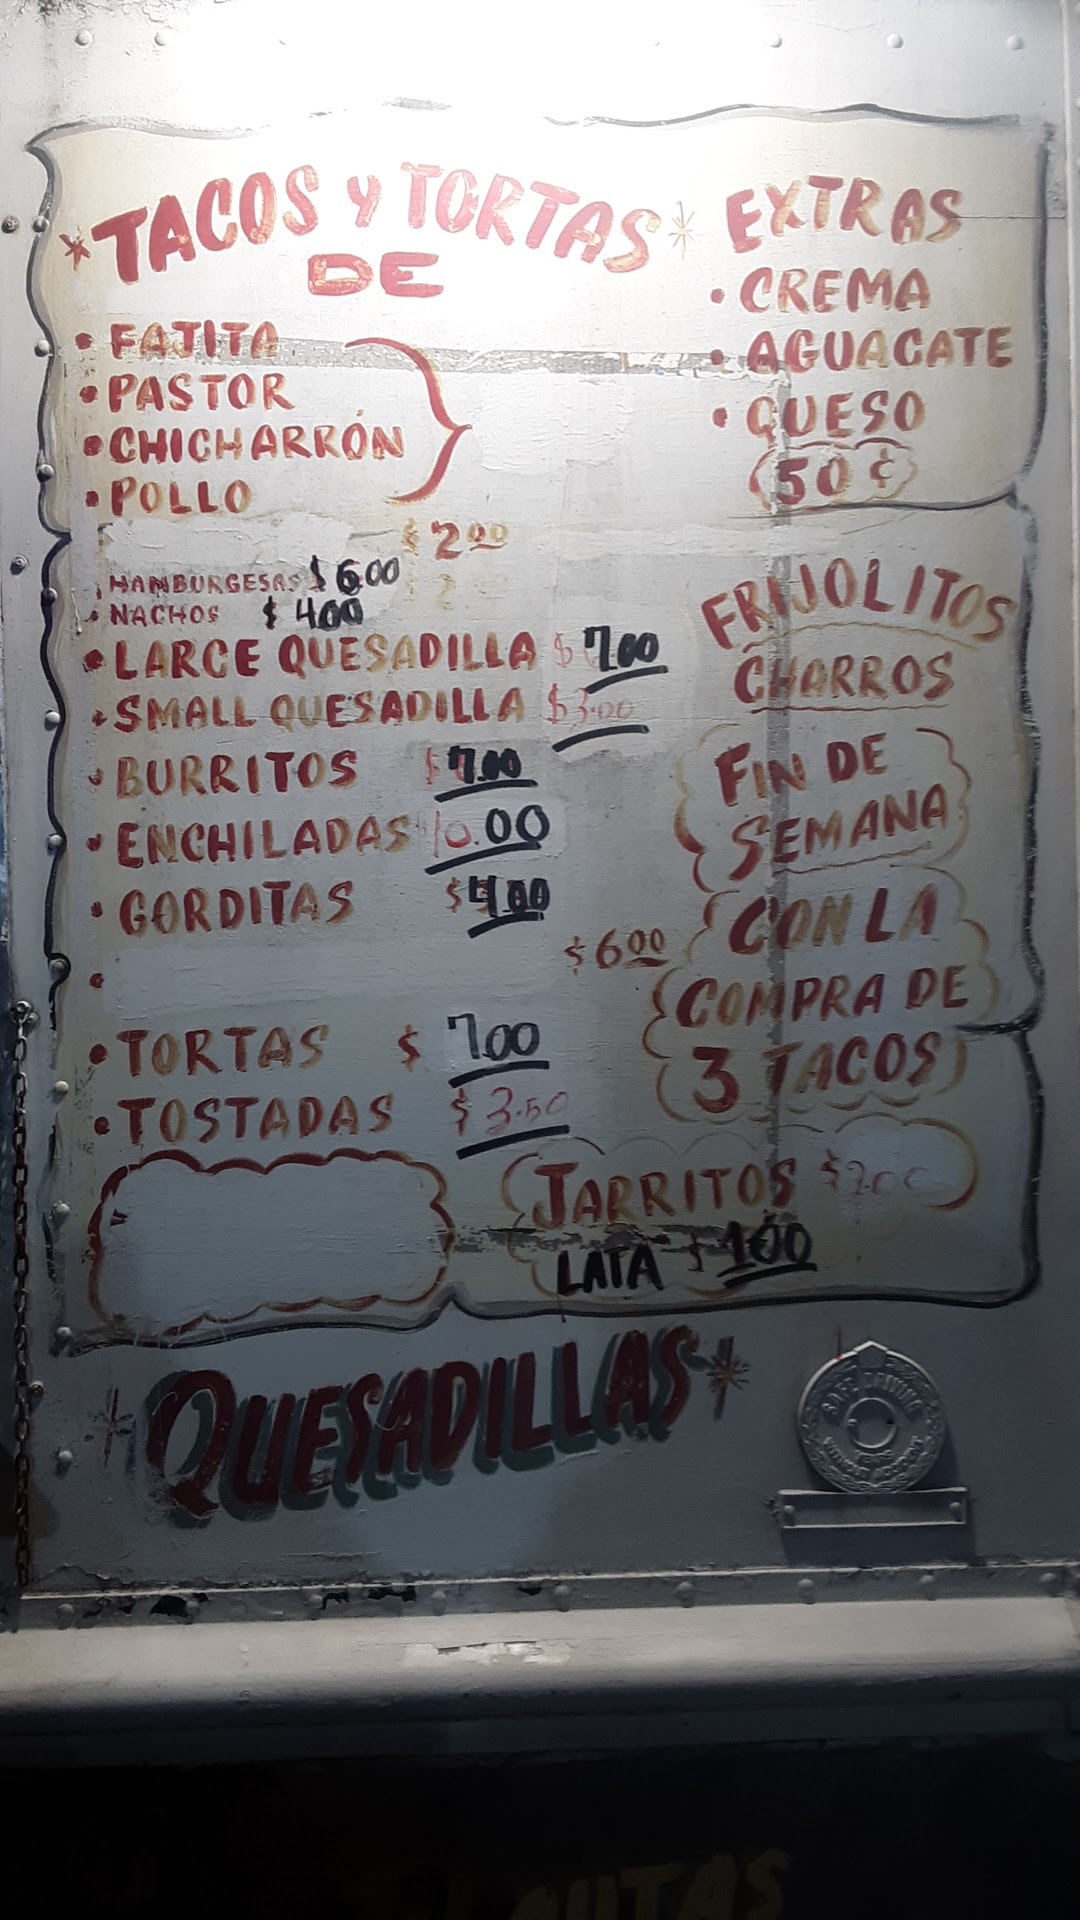 TACOS Y TORTAS
DE
• FAJITA
• PASTOR
• CHICHARRÓN
• POLLO
$2.00
HAMBURGESAS $6.00
NACHOS $4.00
• LARGE QUESADILLA $7.00
• SMALL QUESADILLA $3.00
• BURRITOS $7.00
• ENCHILADAS $10.00
• GORDITAS $4.00
$6.00
• TORTAS $7.00
• TOSTADAS $3.50
EXTRAS
• CREMA
• AGUACATE
• QUESO
50¢
FRIJOLITOS
CHARROS
FIN DE
SEMANA
CON LA
COMPRA DE
3 TACOS
JARRITOS $2.00
LATA $1.00
QUESADILLAS
SAFE DRIVING